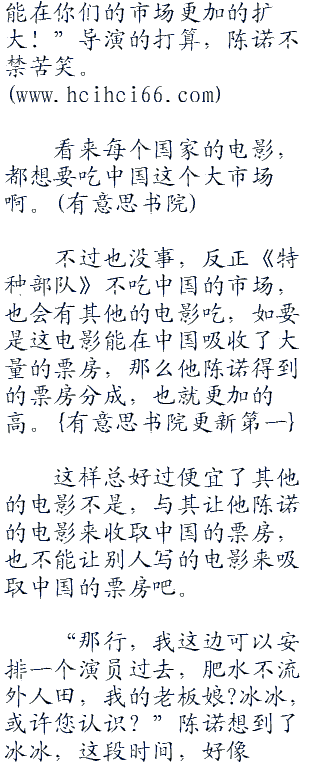 能在你们的市场更加的扩
大！”导演的打算，陈诺不
禁苦笑。
(www.hcihci66.com)
看来每个国家的电影，
都想要吃中国这个大市场
啊。(有意思书院)
不过也没事，反正《特
种部队》不吃中国的市场，
也会有其他的电影吃，如要
是这电影能在中国吸收了大
量的票房，那么他陈诺得到
的票房分成，也就更加的
高。{有意思书院更新第一}
这样总好过便宜了其他
的电影不是，与其让他陈诺
的电影来收取中国的票房，
也不能让别人写的电影来吸
取中国的票房吧。
“那行，我这边可以安
排一个演员过去，肥水不流
外人田，我的老板娘?冰冰，
或许您认识？”陈诺想到了
冰冰，这段时间，好像